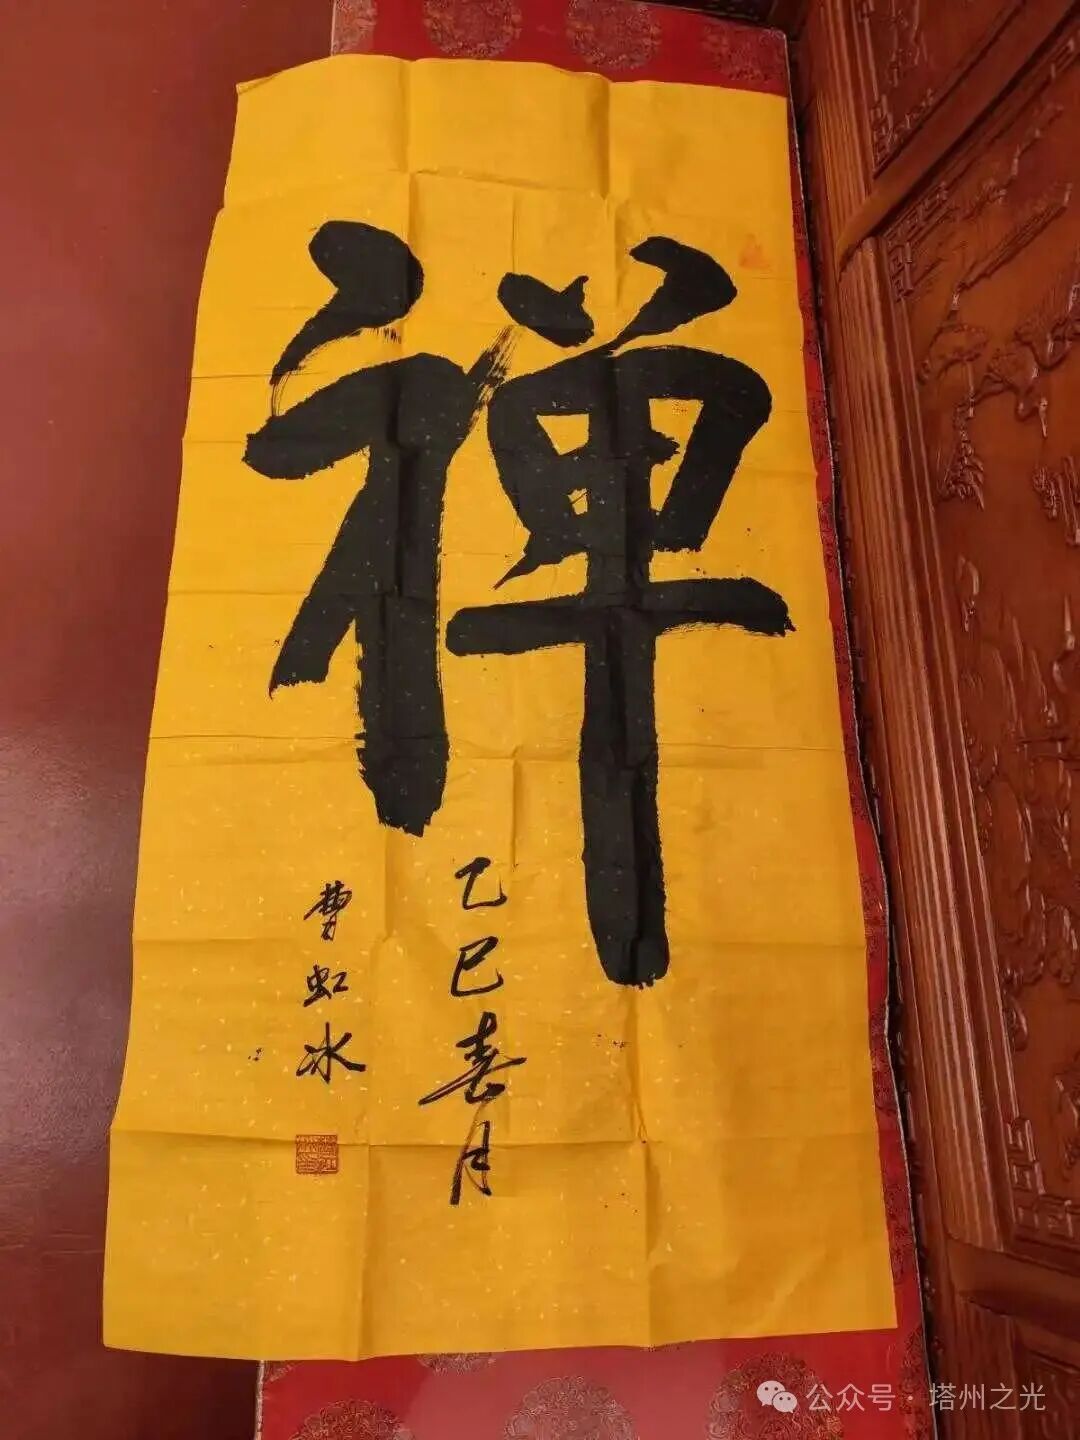 禅
乙巳春月
曹虹冰
公众号·塔州之光